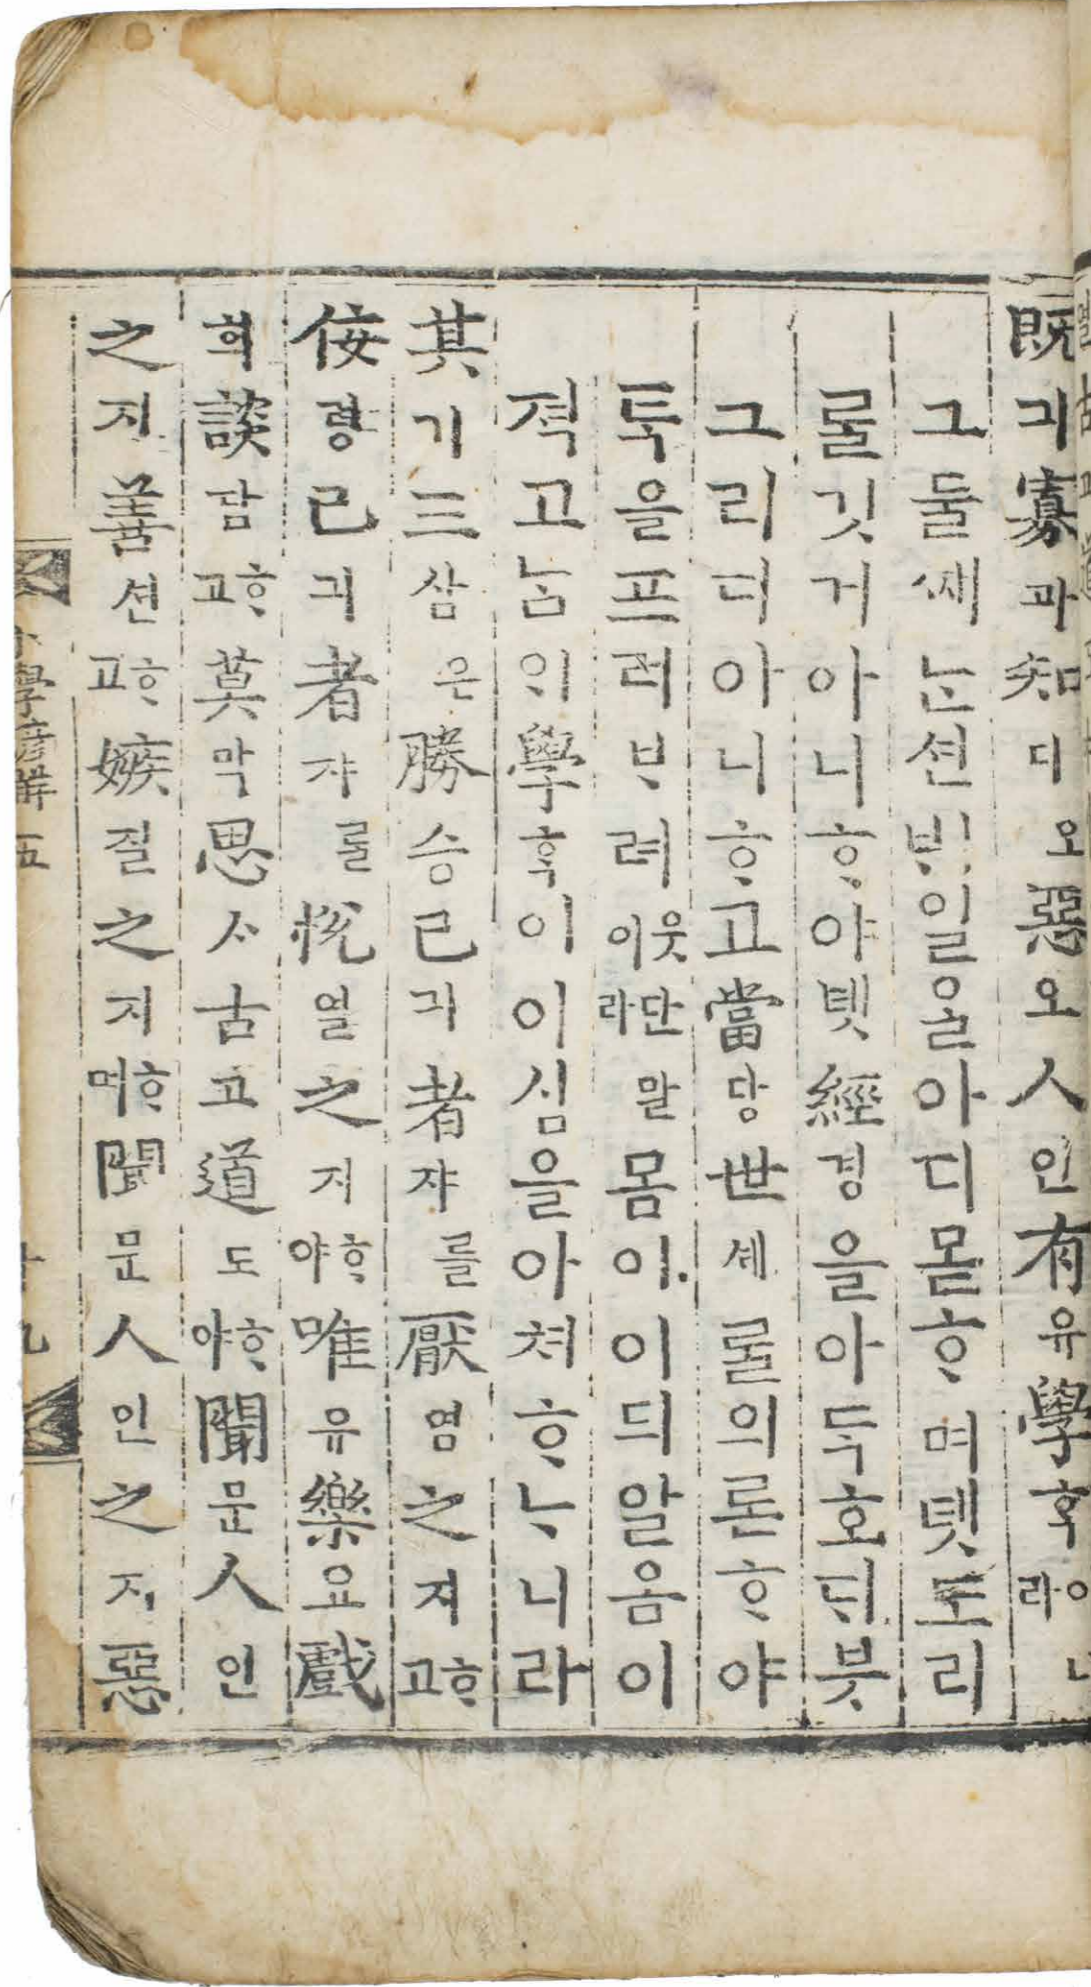 旣긔寡과知디오惡오人인有유學ᄒᆞᆨᄋᆞ니라
그둘쎄ᄂᆞᆫ션ᄇᆡ일을아디몯ᄒᆞ며녯도리
ᄅᆞᆯ깃거아니ᄒᆞ야녯經경을아ᄃᆞᆨ호ᄃᆡ붓
그리디아니ᄒᆞ고當당世셰ᄅᆞᆯ의론ᄒᆞ야
ᄐᆞᆨ을프러ᄇᆞ려웃이단라말몸이이믜알옴이
젹고ᄂᆞᆷ의學ᄒᆞᆨ이이심을아쳐ᄒᆞᄂᆞ니라
其기三삼은勝승己긔者쟈를厭염之지ᄒᆞ고
佞령己긔者쟈ᄅᆞᆯ悅열之지ᄒᆞ야唯유樂요戲
희談담ᄒᆞ고莫막思ᄉᆞ古고道도ᄒᆞ야聞문人인
之지善션ᄒᆞ고嫉질之지ᄒᆞ며聞문人인之지惡
小學諺解 五 十九